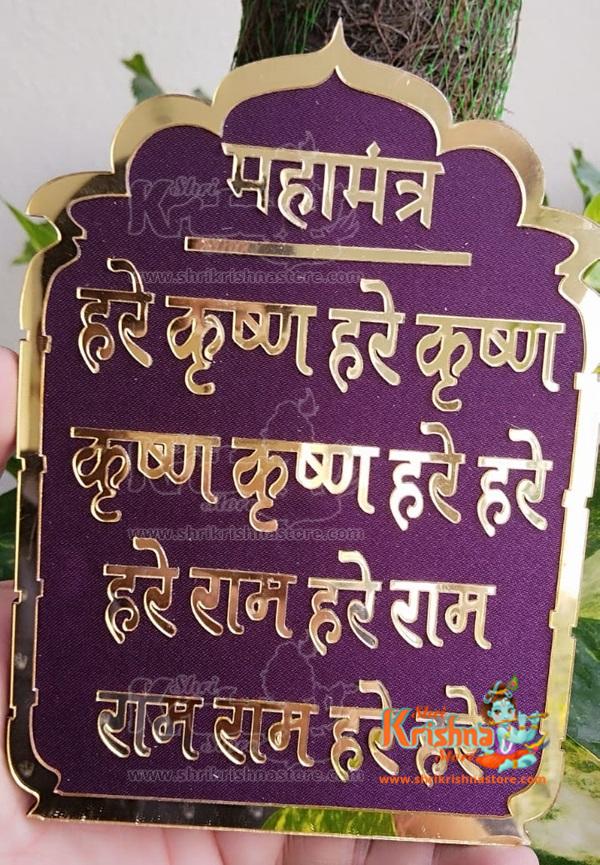 महामंत्र
हरे कृष्ण हरे कृष्ण
कृष्ण कृष्ण हरे हरे
हरे राम हरे राम
राम राम हरे हरे
Shri
Krishna
Store
www.shrikrishnastore.com
www.shrikrishnastore.com
www.shrikrishnastore.com
www.shrikrishnastore.com